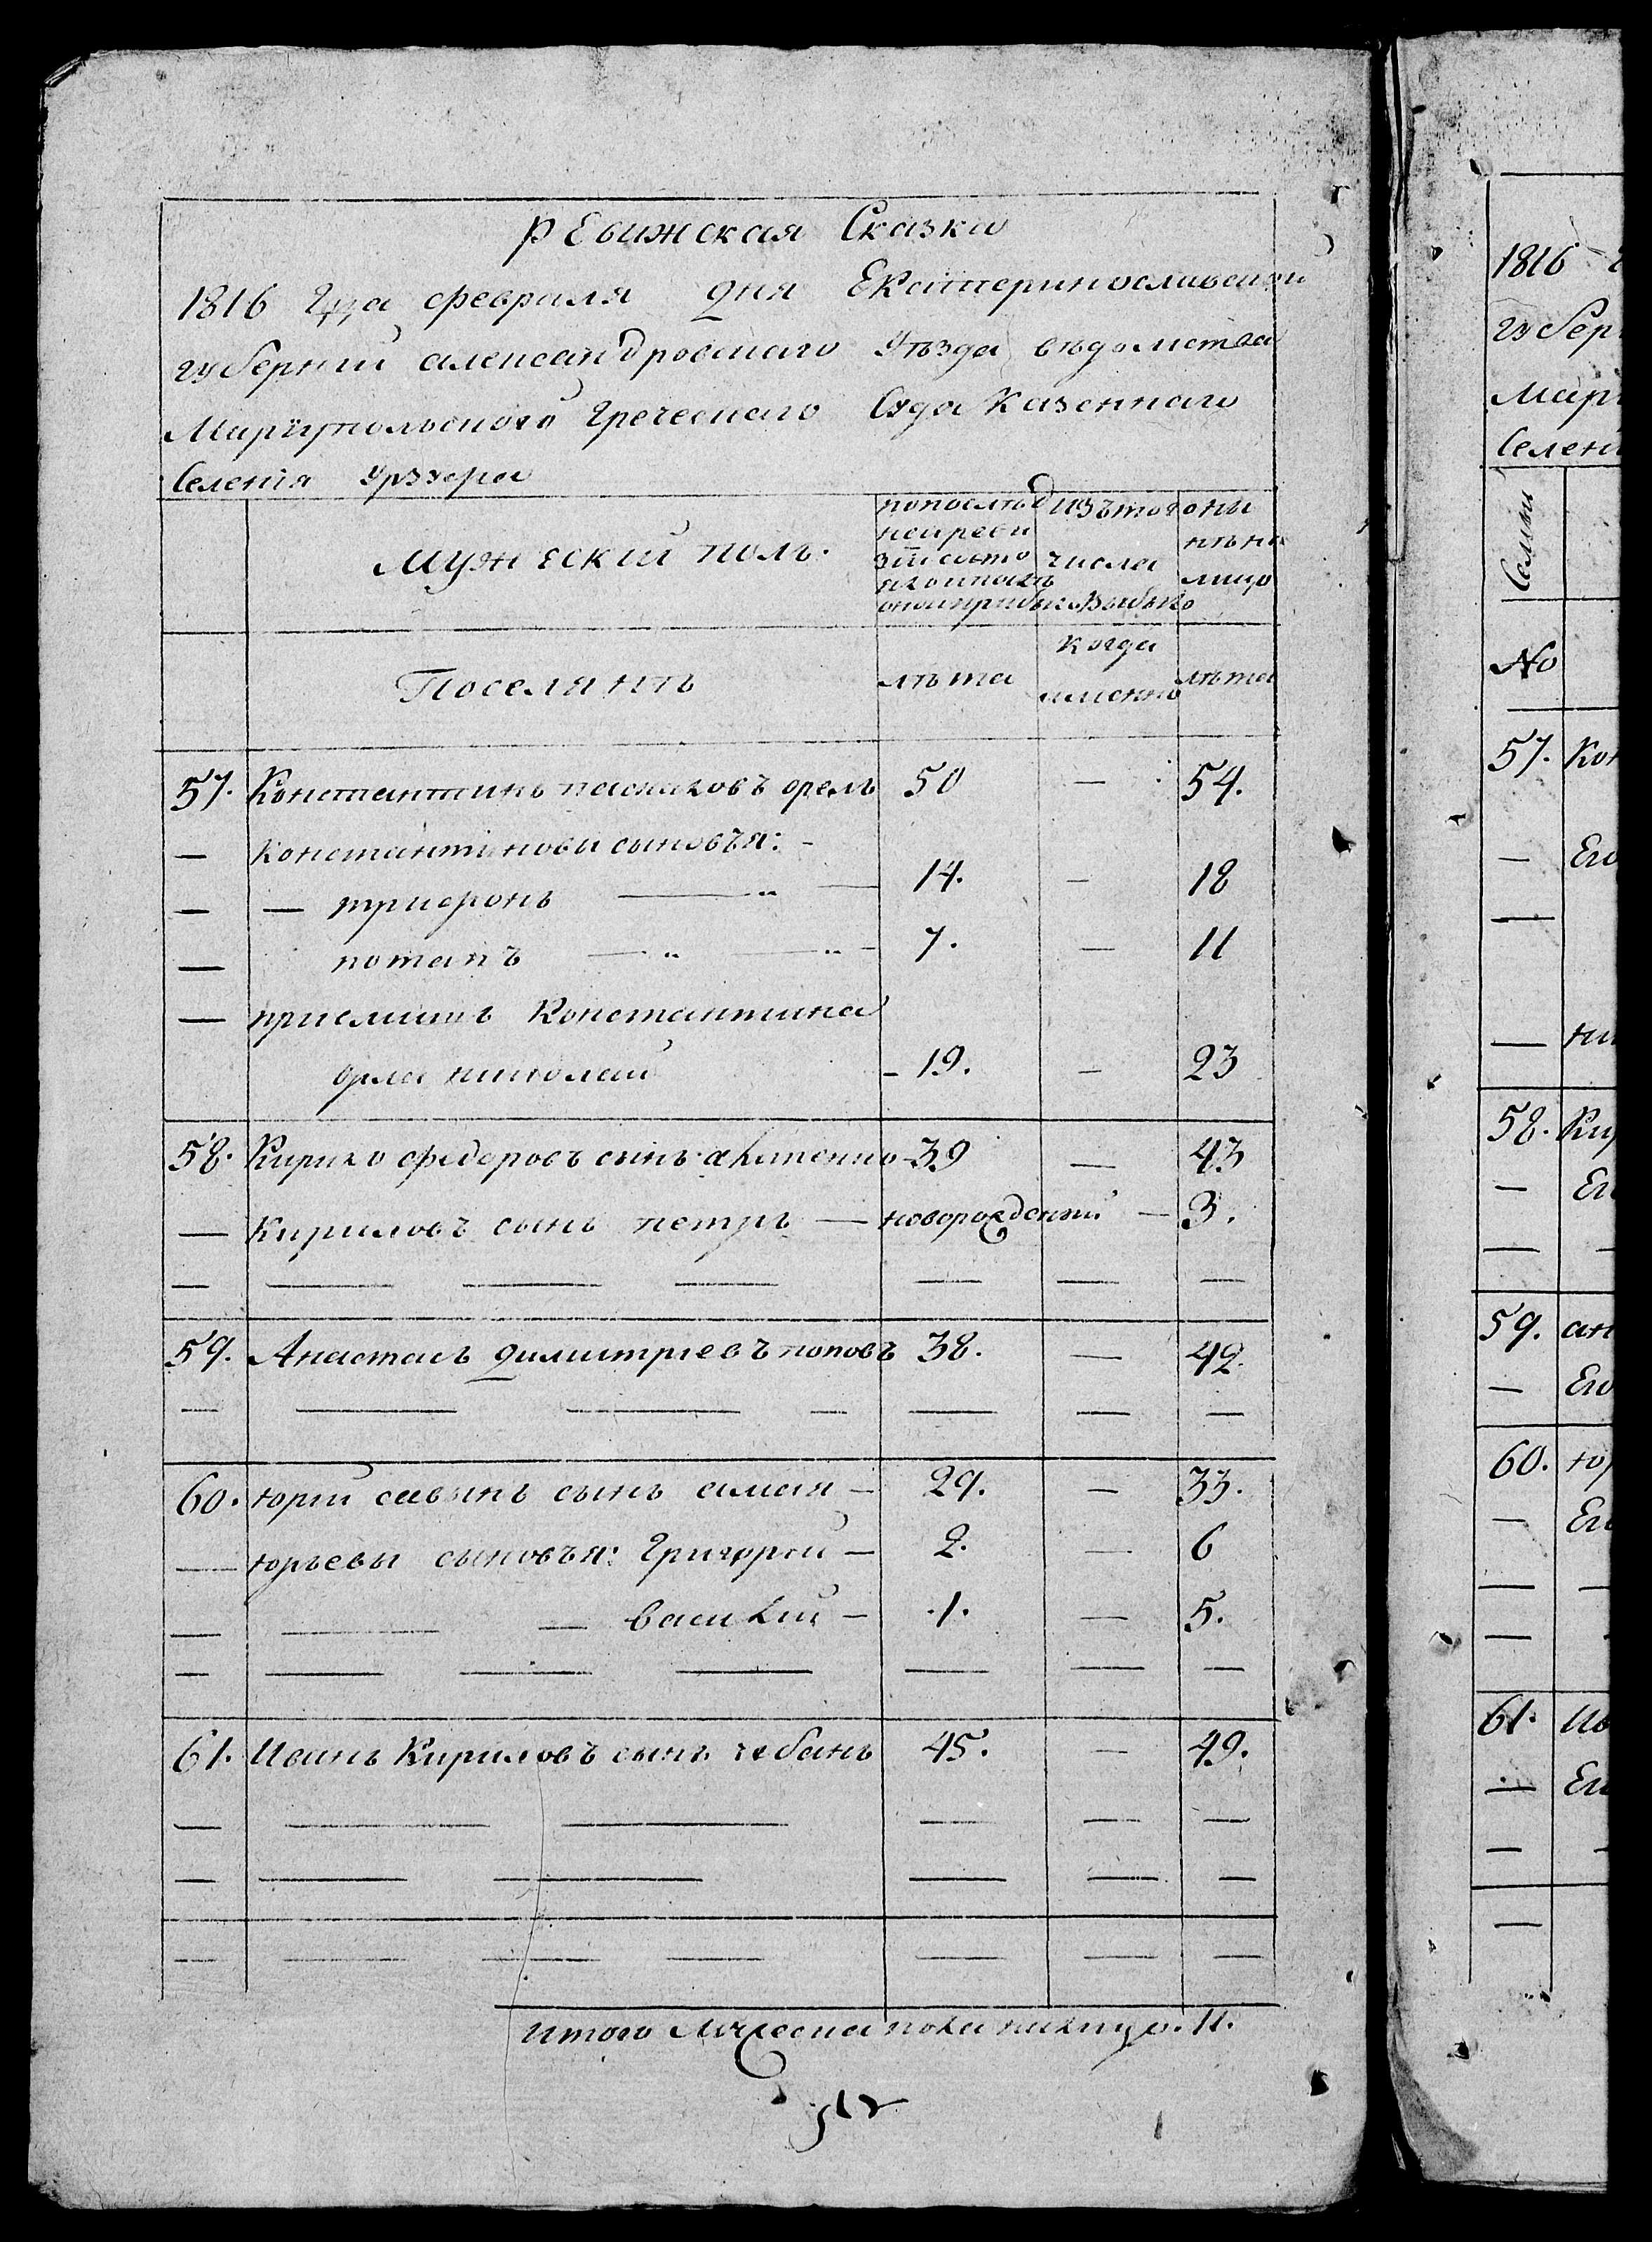 рЕвижская Сказка
1816 года февраля дня Екатеринославской
губернии александровскаго уѣзда ведомства
Мариупольского Греческаго Суда Казеннаго
Селенія Урззуфа
Мужеский полъ.
попослѣд
ней реви
зіи состо
яло и послѣ
оной прибыло
изътого
числа
выбыло
оны
нѣ на
лицо
Поселянъ
лѣта
когда
именно
лѣта
57. Константинъ паскаловъ орелъ 50 — 54.
— константиновы сыновъя: -
— — трифонъ — 14. — 18
— потапъ — 7. — 11
— приемышъ Константина
орла николай - 19. — 23
58. Кирило федоровъ сынъ 39 — 43
— Кириловъ сынъ петръ — новорожденый — 3.
59. Анастасъ димитриевъ поповъ 38. — 42.
60. юрий савинъ сынъ — 29. — 33.
— юръевы сыновъя: Григорий — 2. — 6
— — василий — .1. — 5.
61. Иванъ Кириловъ сынъ чебанъ 45. — 49.
итого мужеска пола налицо. 11.
1816
губер
Мари
Селен
Семьи
No
57. Кон
— Его
—
— ни
58. Кир
— Ег
59. ан
— Его
60. юр
— Ег
61. Ив
— Ег